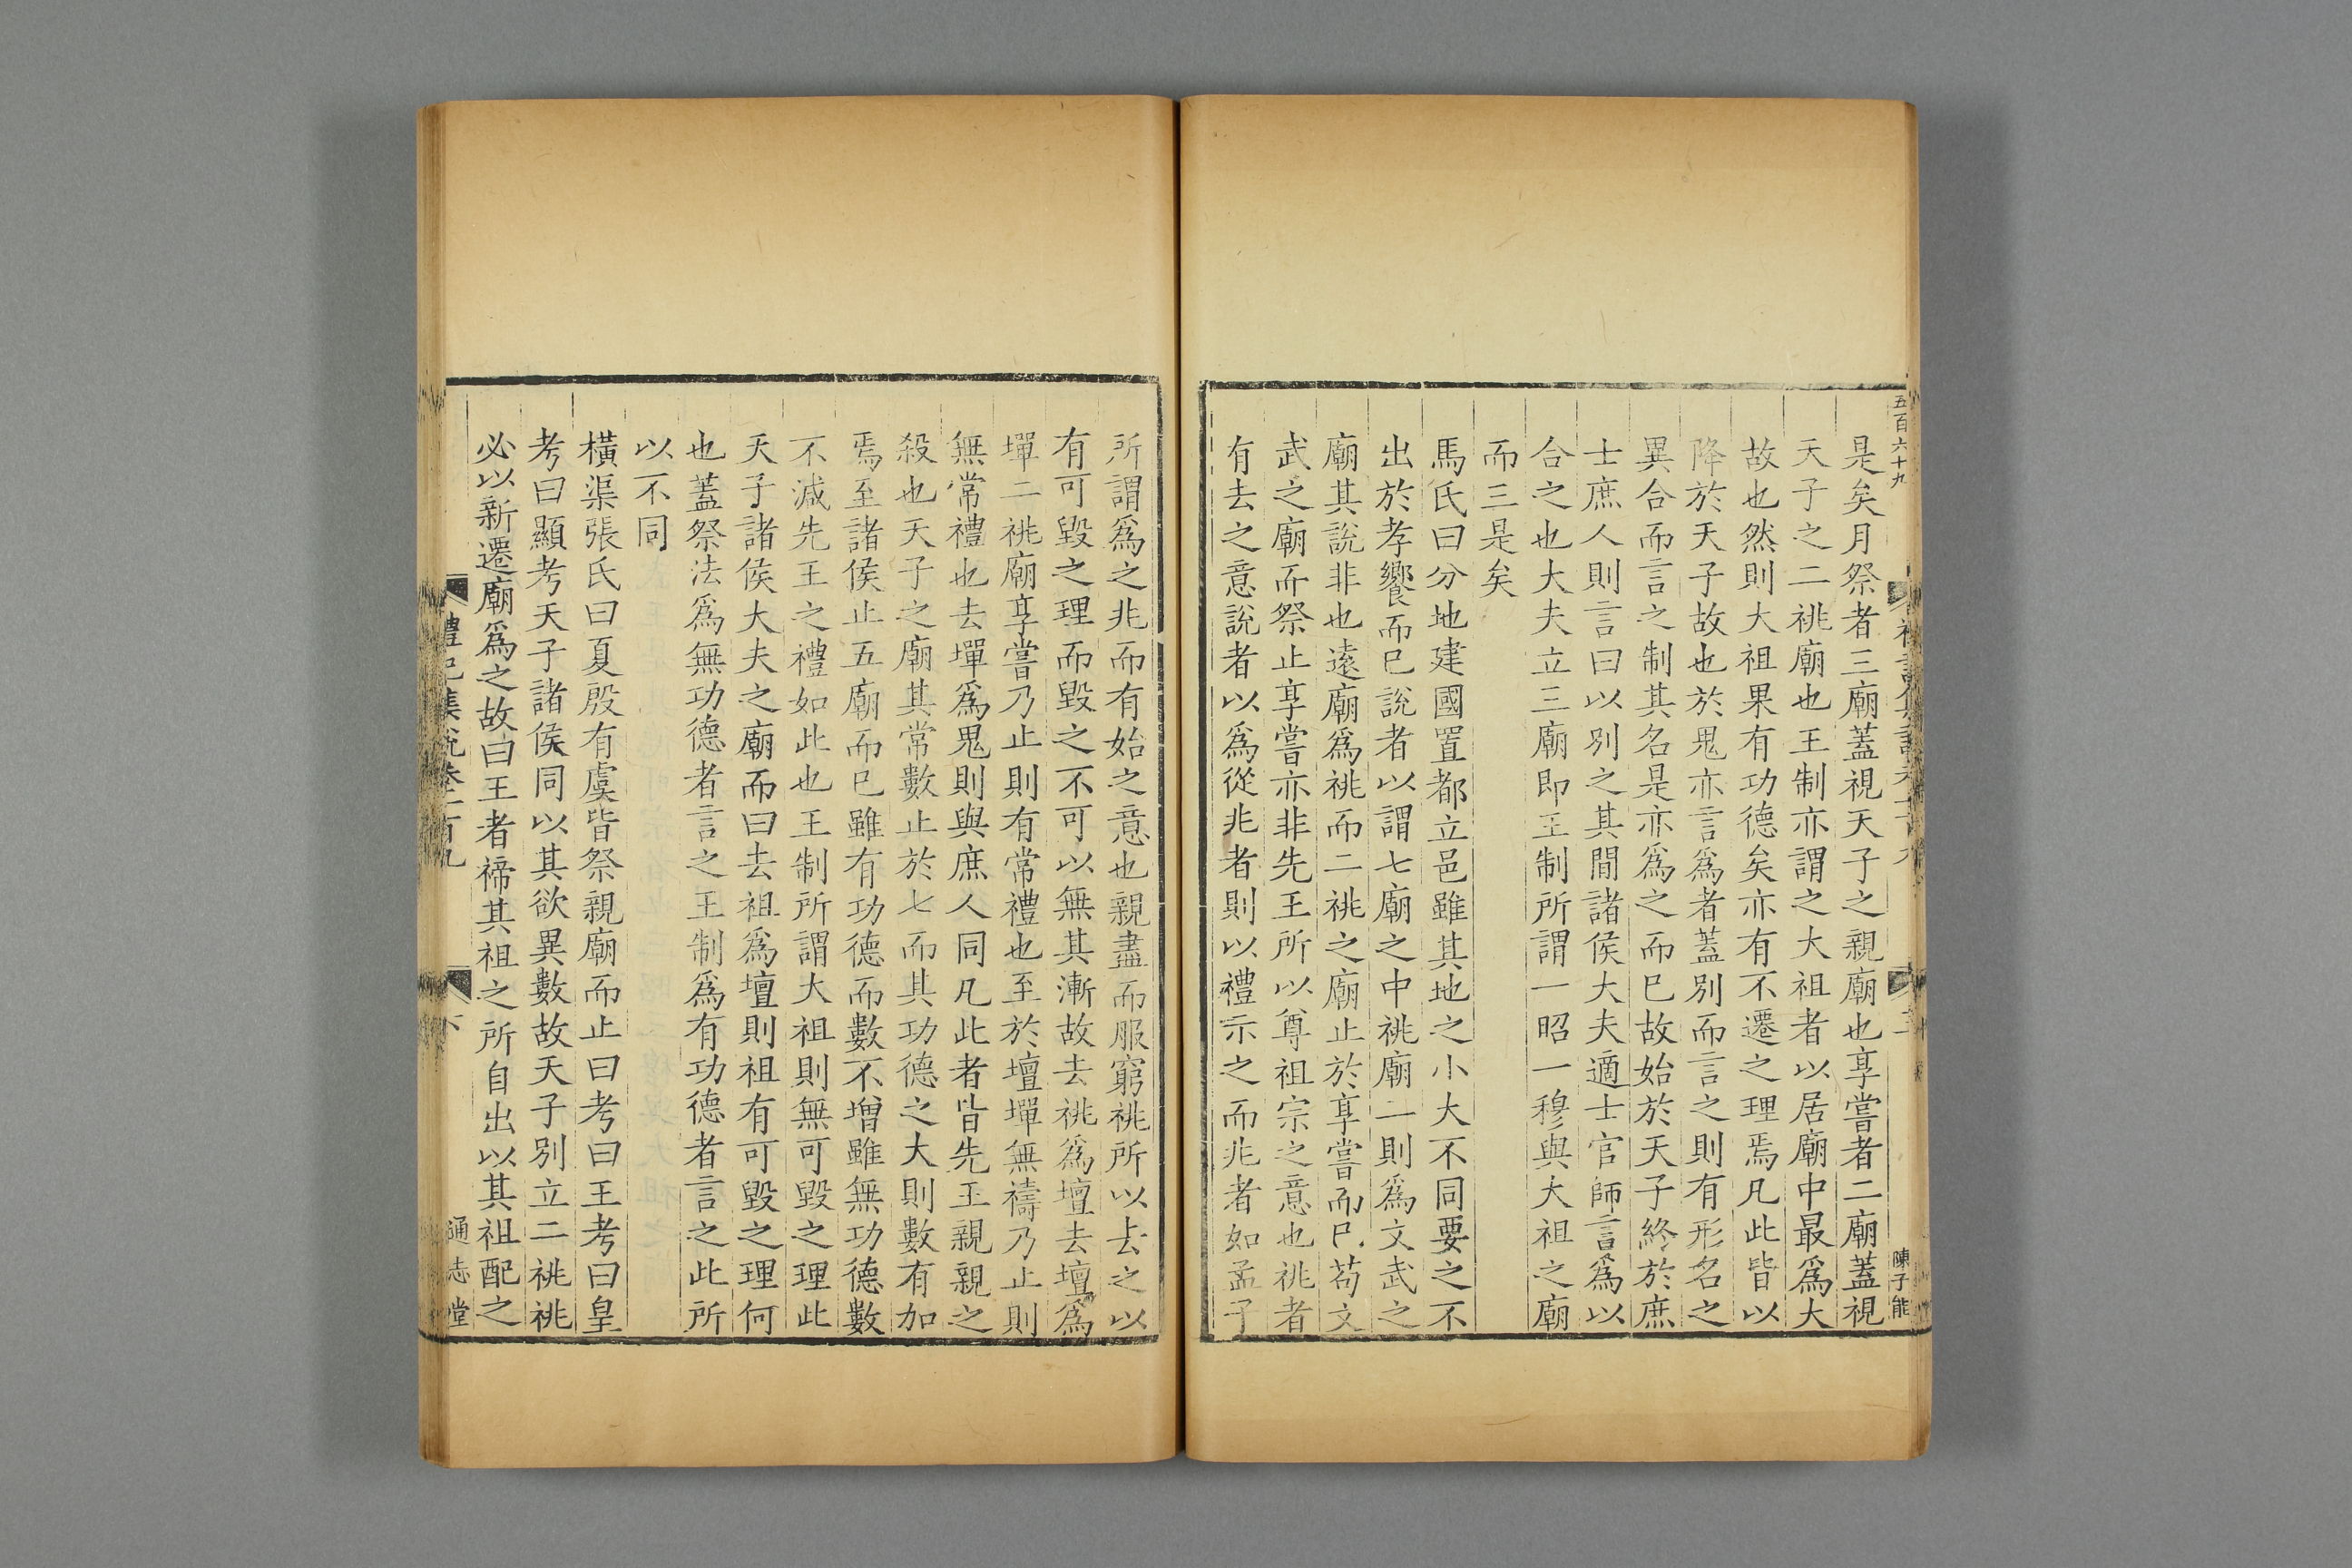 五百六十九
陳子能
是矣月祭者三廟蓋視天子之親廟也享嘗者二廟蓋視
天子之二祧廟也王制亦謂之大祖者以居廟中最爲大
故也然則大祖果有功德矣亦有不遷之理焉凡此皆以
降於天子故也於鬼亦言爲者蓋別而言之則有形名之
異合而言之制其名是亦爲之而已故始於天子終於庶
士庶人則言曰以別之其間諸侯大夫適士官師言爲以
合之也大夫立三廟即王制所謂一昭一穆與大祖之廟
而三是矣
馬氏曰分地建國置都立邑雖其地之小大不同要之不
出於孝饗而已說者以謂七廟之中祧廟二則爲文武之
廟其說非也遠廟爲祧而二祧之廟止於享嘗而已苟文
武之廟而祭止享嘗亦非先王所以尊祖宗之意也祧者
有去之意說者以爲從兆者則以禮示之而兆者如孟子
所謂爲之兆而有始之意也親盡而服窮祧所以去之以
有可毀之理而毀之不可以無其漸故去祧爲壇去壇爲
墠二祧廟享嘗乃止則有常禮也至於壇墠無禱乃止則
無常禮也去墠爲鬼則與庶人同凡此者皆先王親親之
殺也天子之廟其常數止於七而其功德之大則數有加
焉至諸侯止五廟而已雖有功德而數不增雖無功德數
不減先王之禮如此也王制所謂大祖則無可毀之理此
天子諸侯大夫之廟而曰去祖爲壇則祖有可毀之理何
也蓋祭法爲無功德者言之王制爲有功德者言之此所
以不同
橫渠張氏曰夏殷有虞皆祭親廟而止曰考曰王考曰皇
考曰顯考天子諸侯同以其欲異數故天子別立二祧祧
必以新遷廟爲之故曰王者禘其祖之所自出以其祖配之
禮記集說卷一百九
通志堂